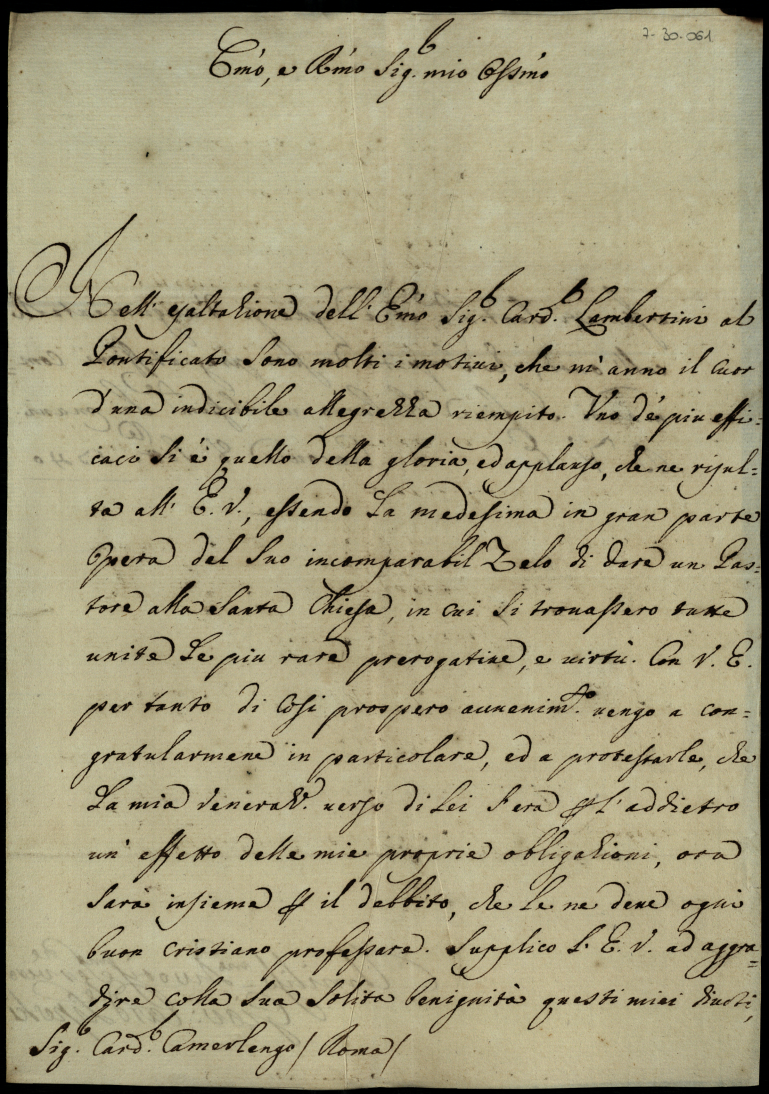 7-30-061
Em̃o, e Rm̃o Sig.r mio Ossm̃o
Nell' esaltazione dell' Em̃o Sig.r Card.l Lambertini al
Pontificato sono molti i motivi, che m' anno il cuor
d'una indicibile allegrezza riempito. Uno de' piu effi=
caci si é quello della gloria, ed applauso, che ne risul=
ta all' E. V., essendo la medesima in gran parte
opera del suo incomparabil Zelo di dare un Pas=
tore alla Santa Chiesa, in cui si trovassero tutte
unite le piu rare prerogative, e virtù. Con V. E.
per tanto di cosi prospero avvenim.to vengo a con=
gratularmene in particolare, ed a protestarle, che
la mia veneraz.e verso di Lei s'era per l'addietro
un' effetto delle mie proprie obligazioni, ora
sarà insieme per il debbito, che le ne deve ogni
buon cristiano professare. Supplico l' E. V. ad aggra=
dire colla sua solita benignità questi miei
Sig.r Card.l Camerlengo / Roma /